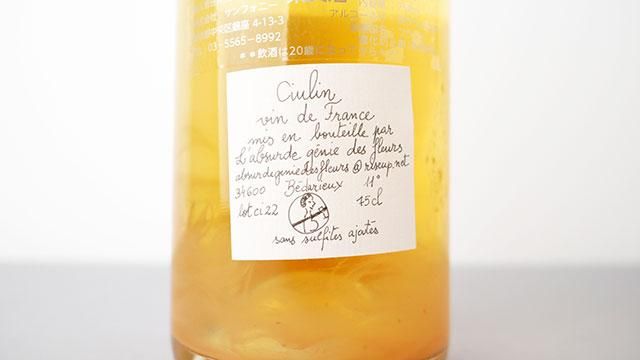 サンフォニー
銀座 4-13-3
03-5565-8992
アルコール
**飲酒は20歳に
Ciulin
vin de France
mis en bouteille par
L'absurde génie des fleurs
absurdegeniedesfleurs@riseup.net
34600 Bédarieux 11°
lot ci22 75cl
sans sulfites ajoutés